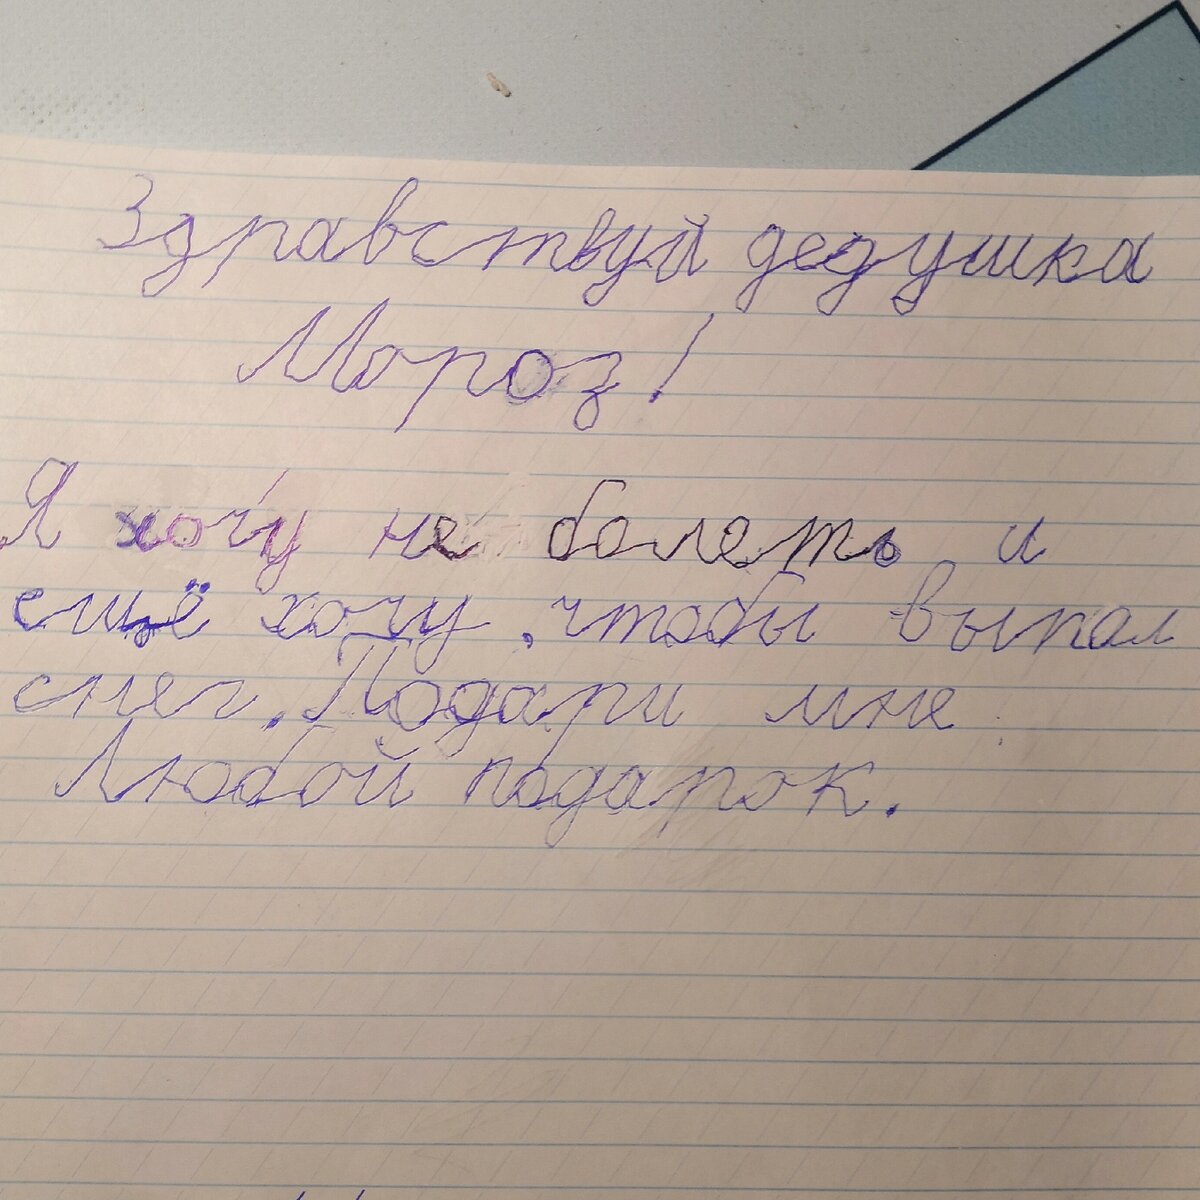 Здравствуй дедушка
Мороз!
Я хочу не болеть и
ещё хочу, чтобы выпал
снег. Подари мне
Любой подарок.